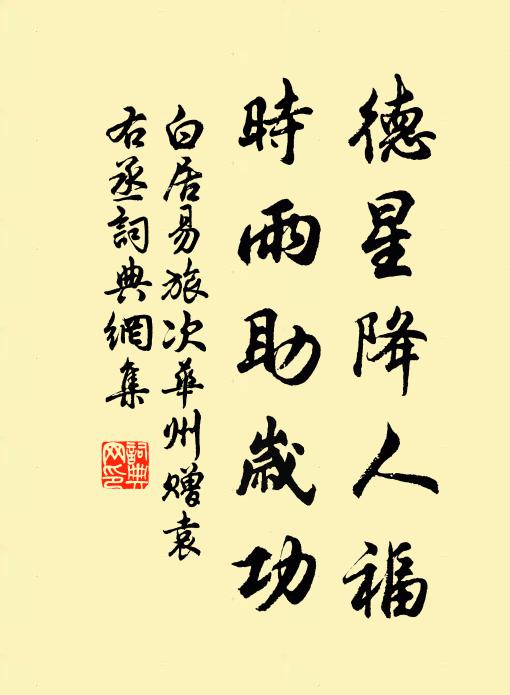 德星降人福
時雨助歲功
白居易旅次華州贈袁
右丞詞典網集
詞典
网印